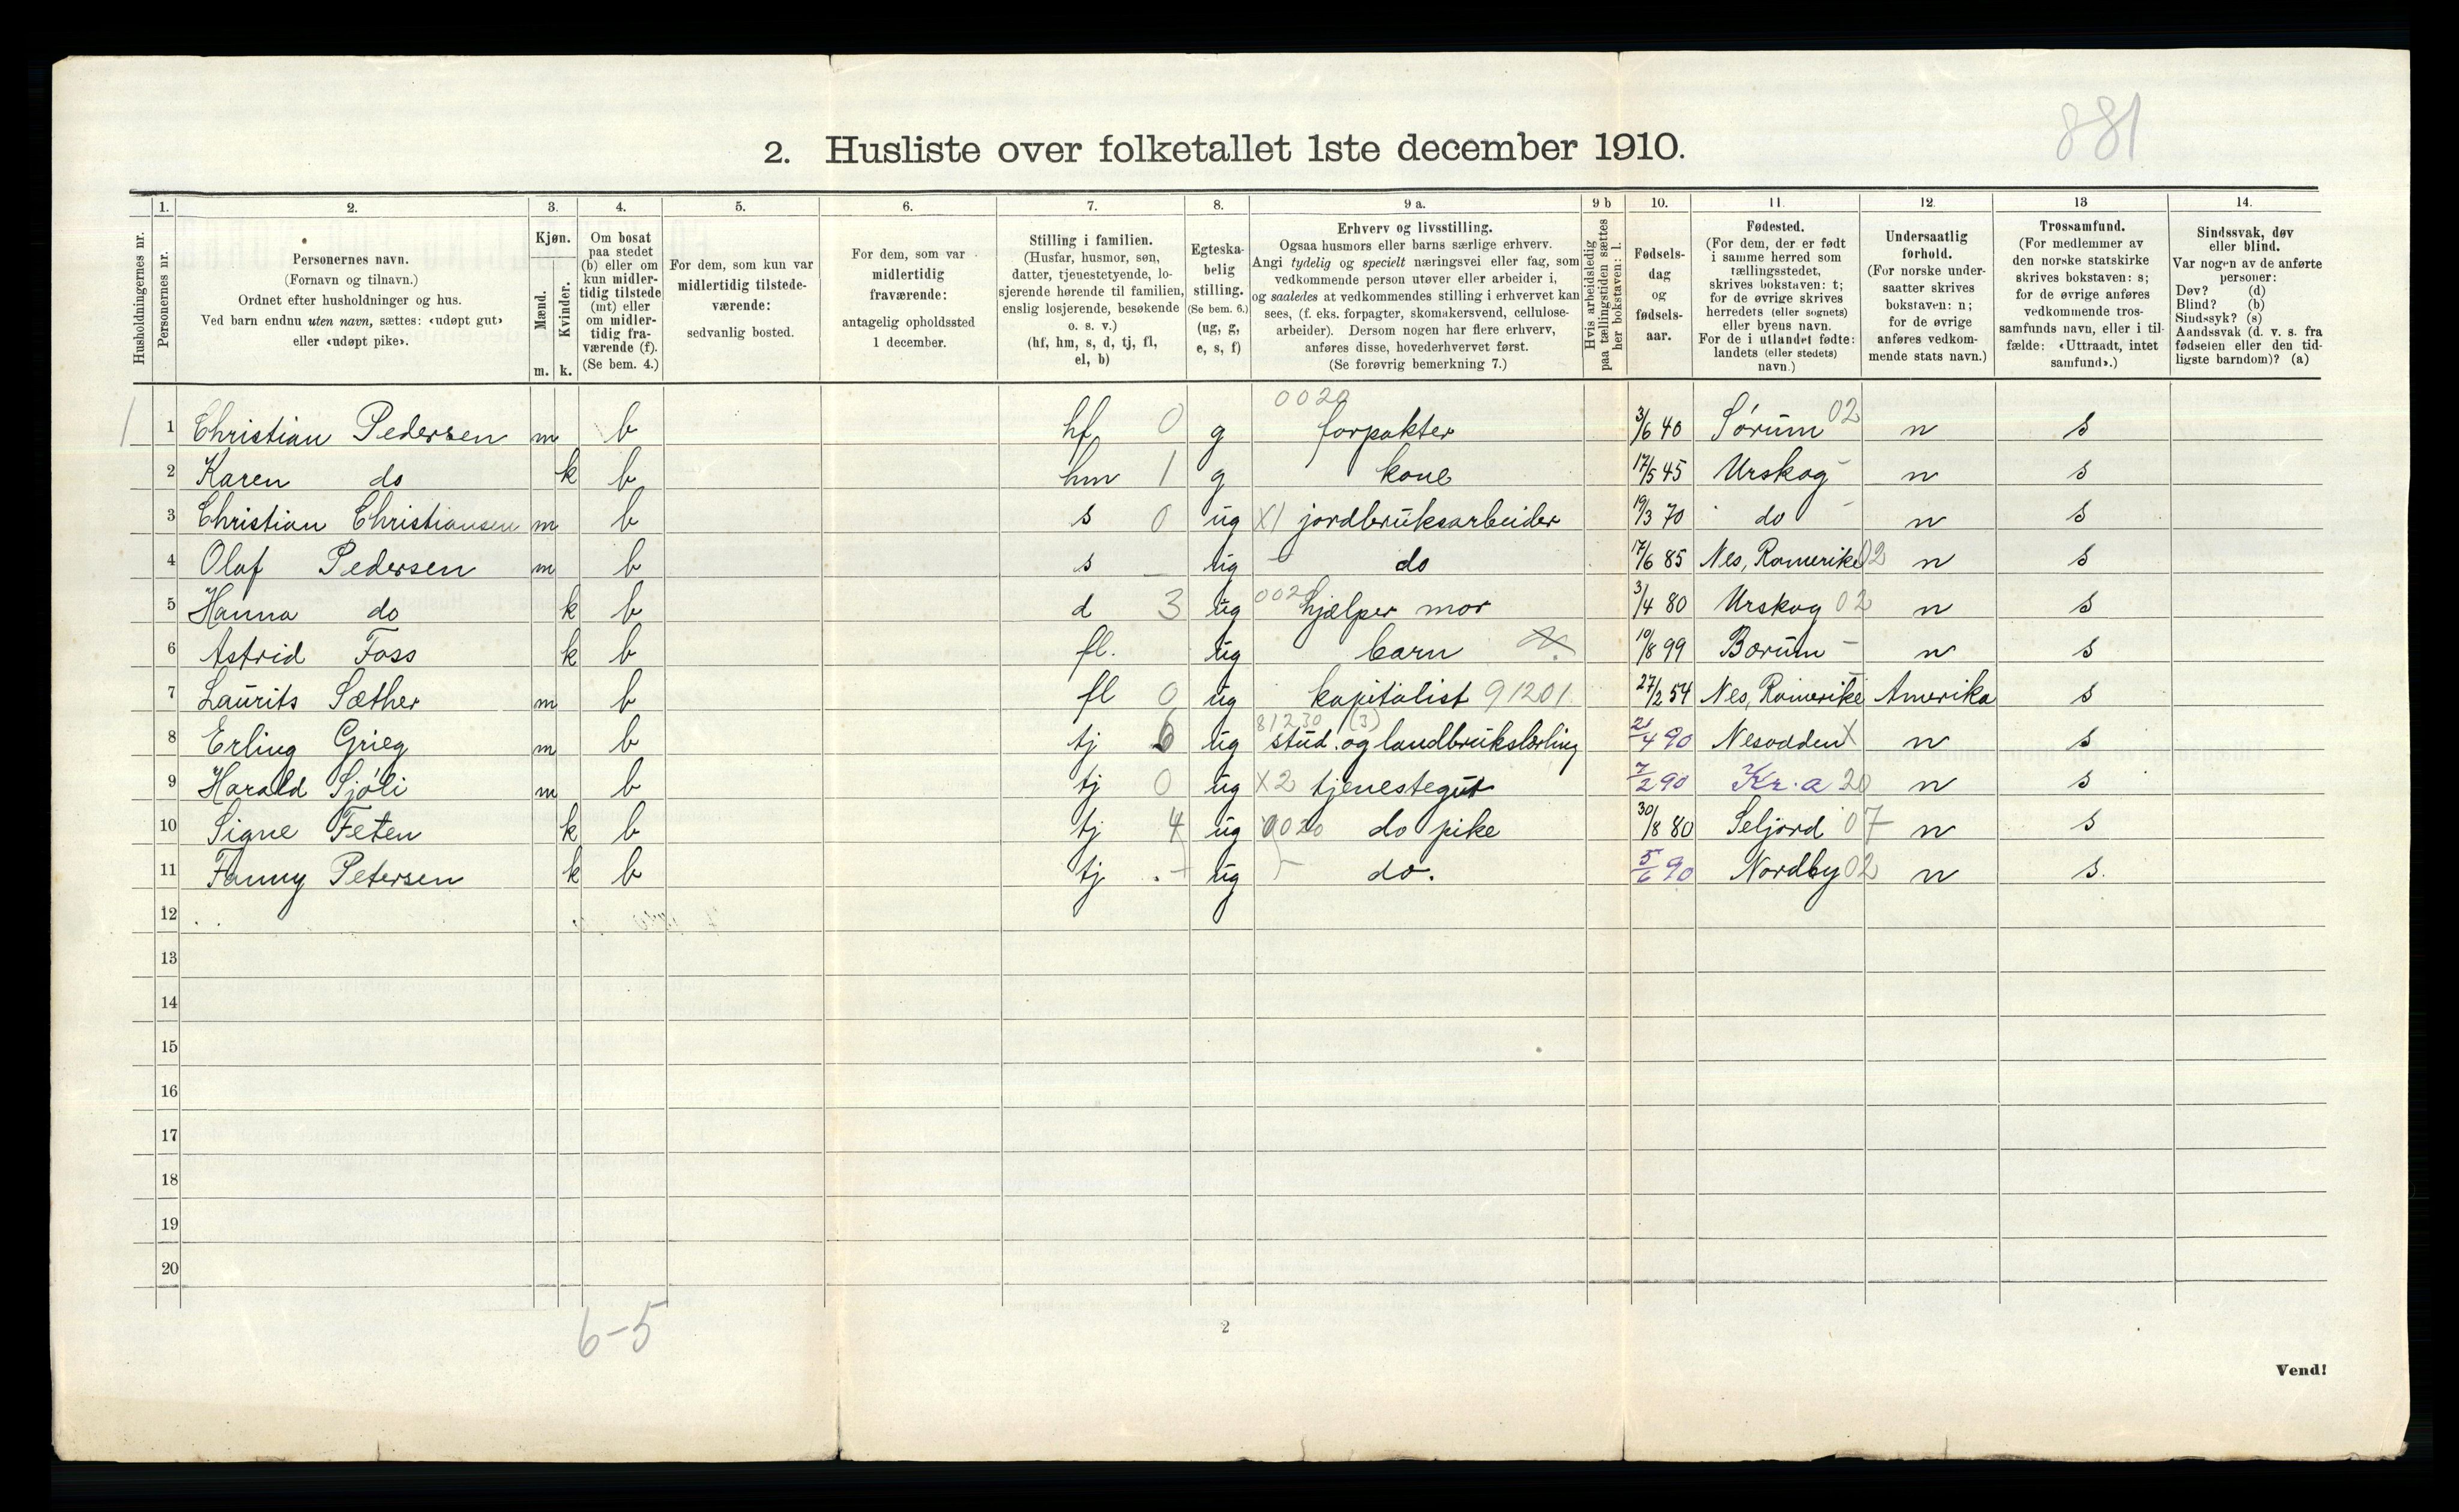 881
2. Husliste over folketallet 1ste december 1910.
Husholdningernes nr.
1. Personernes nr.
2. Personernes navn. (Fornavn og tilnavn.) Ordnet efter husholdninger og hus. Ved barn endnu uten navn, sættes: «udøpt gut» eller «udøpt pike».
3. Kjøn. Mænd. Kvinder. m. k.
4. Om bosat paa stedet (b) eller om kun midlertidig tilstede (mt) eller om midlertidig fraværende (f). (Se bem. 4.)
5. For dem, som kun var midlertidig tilstedeværende: sedvanlig bosted.
6. For dem, som var midlertidig fraværende: antagelig opholdssted 1 december.
7. Stilling i familien. (Husfar, husmor, søn, datter, tjenestetyende, losjerende hørende til familien, enslig losjerende, besøkende o. s. v.) (hf, hm, s, d, tj, fl, el, b)
8. Egteskabelig stilling. (Se bem. 6.) (ug, g, e, s, f)
9 a. Erhverv og livsstilling. Ogsaa husmors eller barns særlige erhverv. Angi tydelig og specielt næringsvei eller fag, som vedkommende person utøver eller arbeider i, og saaledes at vedkommendes stilling i erhvervet kan sees, (f. eks. forpagter, skomakersvend, cellulosearbeider). Dersom nogen har flere erhverv, anføres disse, hovederhvervet først. (Se forøvrig bemerkning 7.)
9 b Hvis arbeidsledig paa tællingstiden sættes her bokstaven: l.
10. Fødselsdag og fødselsaar.
11. Fødested. (For dem, der er født i samme herred som tællingsstedet, skrives bokstaven: t; for de øvrige skrives herredets (eller sognets) eller byens navn. For de i utlandet fødte: landets (eller stedets) navn.)
12. Undersaatlig forhold. (For norske undersaatter skrives bokstaven: n; for de øvrige anføres vedkommende stats navn.)
13 Trossamfund. (For medlemmer av den norske statskirke skrives bokstaven: s; for de øvrige anføres vedkommende trossamfunds navn, eller i tilfælde: «Uttraadt, intet samfund».)
14. Sindssvak, døv eller blind. Var nogen av de anførte personer: Døv? (d) Blind? (b) Sindssyk? (s) Aandssvak (d. v. s. fra fødselen eller den tidligste barndom)? (a)
0020
1 1 Christian Pedersen m b hf 0 g forpakter 3/6 40 Sørum 02 n s
2 Karen do k b hm 1 g kone 17/5 45 Urskog - n s
3 Christian Christiansen m b s 0 ug X1 jordbruksarbeider 19/3 70 do - n s
4 Olaf Pedersen m b s - ug - do 17/6 85 Nes, Romerike 02 n s
5 Hanna do k b d 3 ug 002 hjælper mor 3/4 80 Urskog 02 n s
6 Astrid Foss k b fl. ug barn 10/8 99 Bærum - n s
7 Laurits Sæther m b fl 0 ug kapitalist 91201 27/2 54 Nes, Romerike Amerika s
81230 (3)
8 Erling Grieg m b tj 6 ug stud. og landbrukslærling 21/4 90 Nesodden X n s
9 Harald Sjøli m b tj 0 ug X2 tjenestegut 7/2 90 Kr.a 20 n s
10 Signe Feten k b tj 4 ug 0020 do pike 30/8 80 Seljord 07 n s
11 Fanny Petersen k b tj - ug - do. 5/6 90 Nordby 02 n s.
12
13
14
15
16
17
18
19
20
6-5
2
Vend!